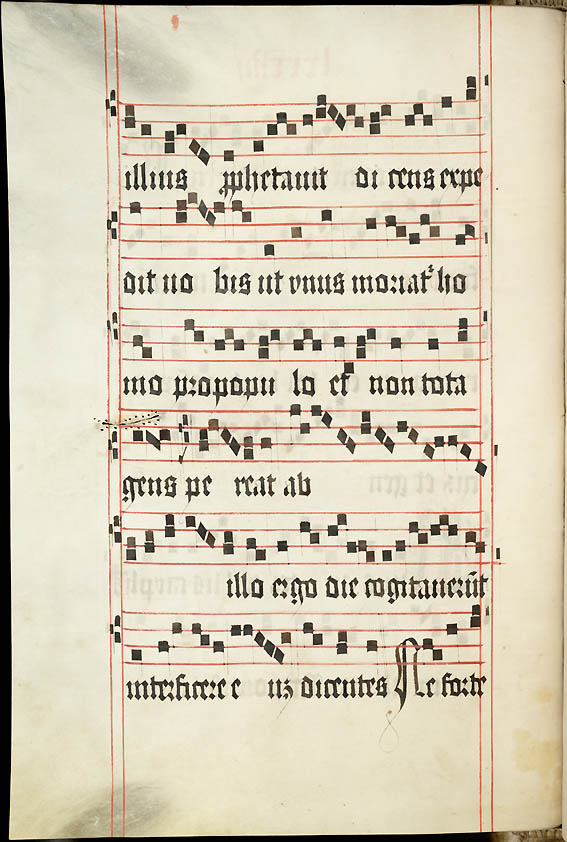 illius ꝓphetauit dicens expe
dit uobis ut vnus moriatͬ ho
mo pro populo et non tota
gens pereat ab
illo ergo die cogitauerūt
interficere eūꝫ dicentes Ne forte